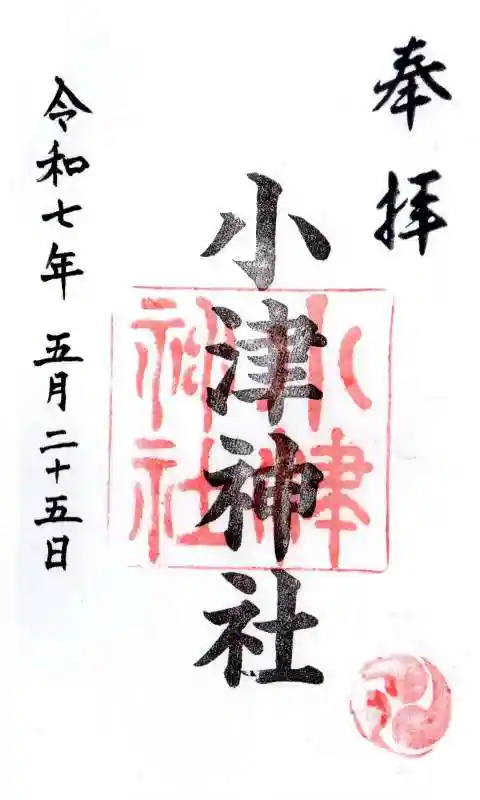 奉拝
小津神社
小津
神社
令和七年 五月二十五日